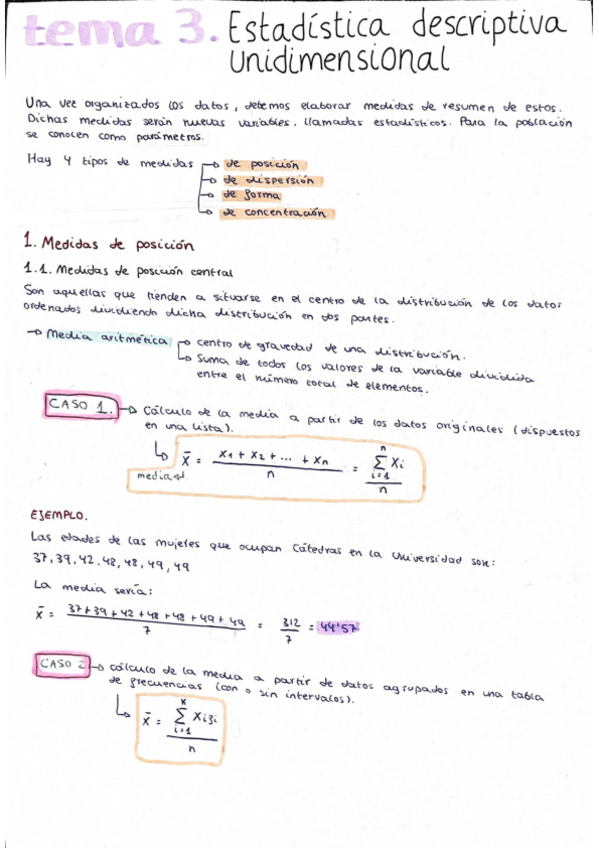 tema 3. Estadística descriptiva
Unidimensional
Una vez organizados los datos, debemos elaborar medidas de resumen de estos.
Dichas medidas serán nuevas variables, llamadas estadísticos. Para la población
se conocen como parámetros.
Hay 4 tipos de medidas → de posición
→ de dispersión
→ de forma
→ de concentración
1. Medidas de posición
1.1. Medidas de posición central
Son aquellas que tienden a situarse en el centro de la distribución de los datos
ordenados dividiendo dicha distribución en dos partes.
→ Media aritmética → centro de gravedad de una distribución.
→ Suma de todos los valores de la variable dividida
entre el número total de elementos.
CASO 1. → Cálculo de la media a partir de los datos originales (dispuestos
en una lista).
x̄ = (x1 + x2 + ... + xn) / n = (∑ i=1 n xi) / n
media
EJEMPLO.
Las edades de las mujeres que ocupan Cátedras en la Universidad son:
37, 39, 42, 48, 48, 49, 49
La media sería:
x̄ = (37+39+42+48+48+49+49) / 7 = 312 / 7 = 44'57
CASO 2 → cálculo de la media a partir de datos agrupados en una tabla
de frecuencias (con o sin intervalos).
x̄ = (∑ i=1 K xifi) / n